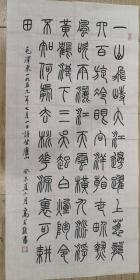 一山飛峙大江邊躍上葱蘢
四百旋冷眼向洋看世界熱
風吹雨灑江天雲橫九派浮
黃鶴浪下三吳起白煙陶令
不知何處去桃花源裏可耕
田
毛澤東一九五九年七月一日詩登廬山 癸巳夏月